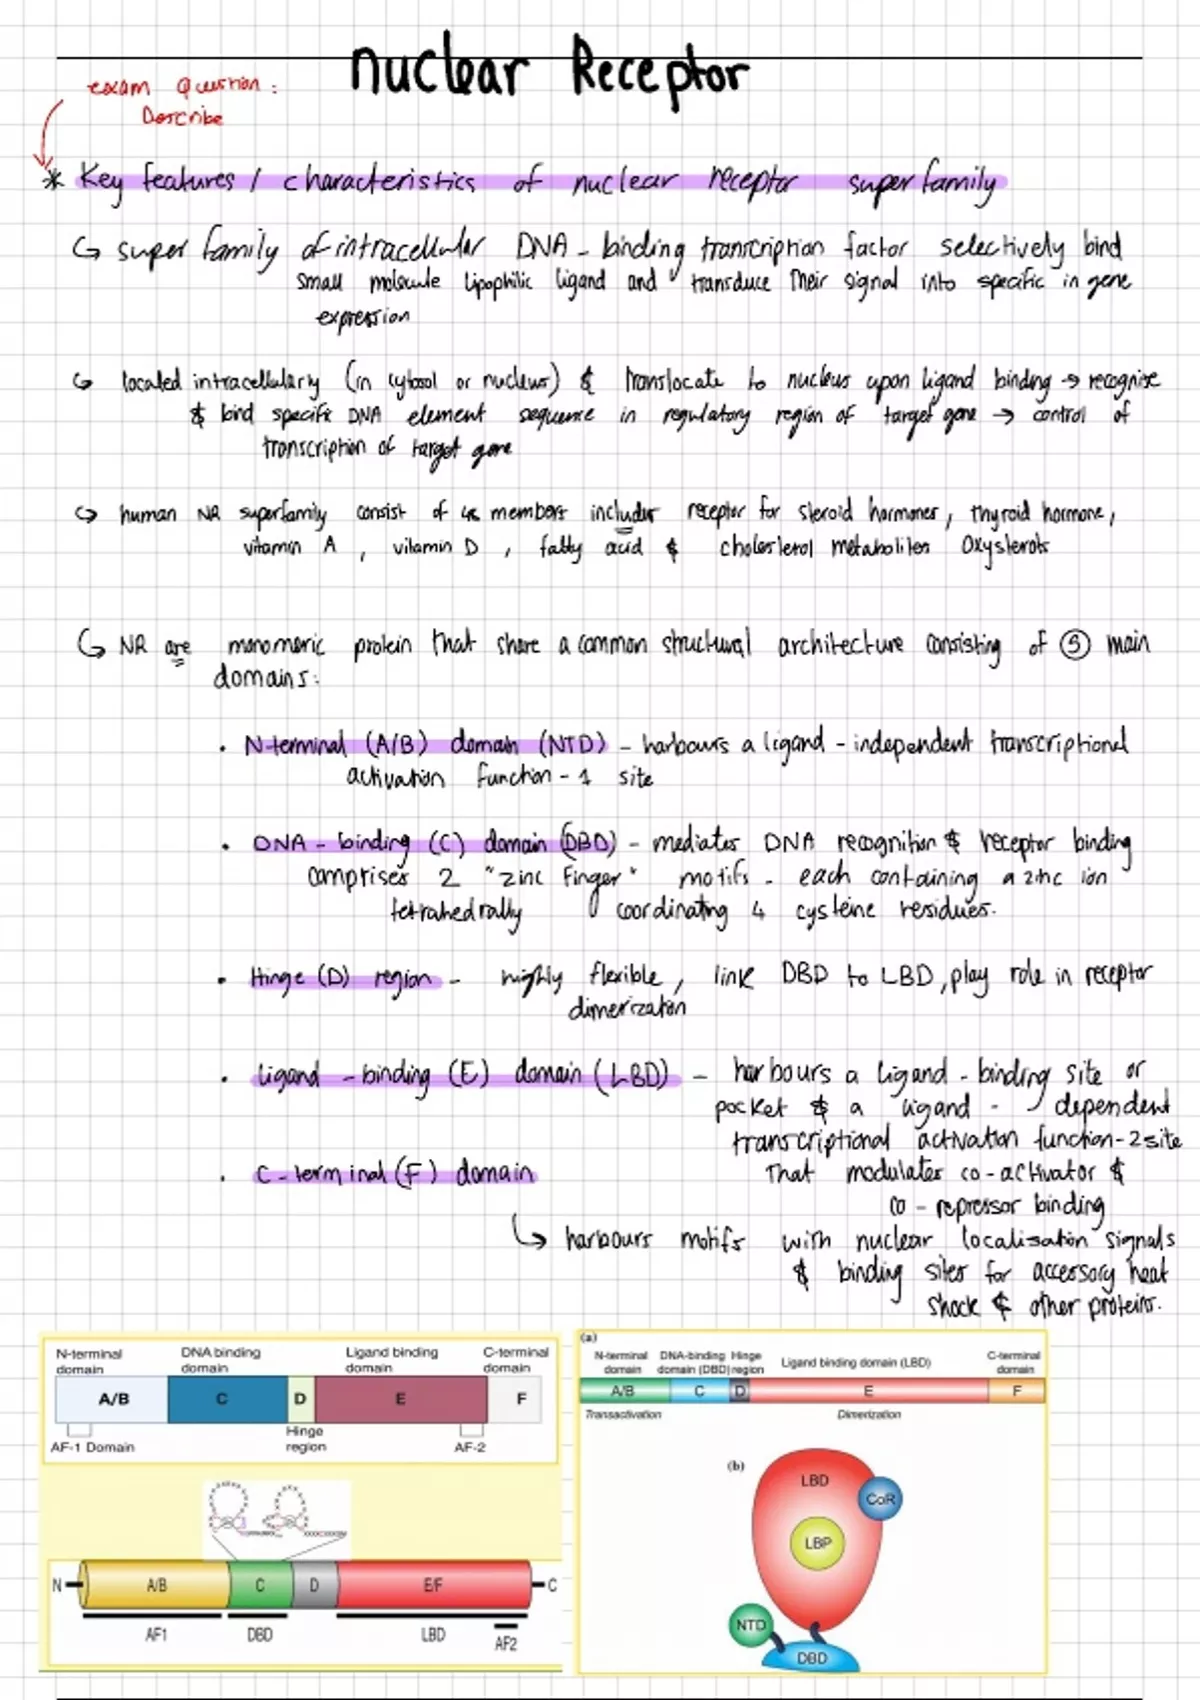 nuclear Receptor
exam question:
Describe
* Key features / characteristics of nuclear receptor superfamily
↳ super family of intracellular DNA - binding transcription factor selectively bind
small molecule lipophilic ligand and transduce their signal into specific in gene
expression
↳ located intracellularly (in cytosol or nucleus) & translocate to nucleus upon ligand binding → recognise
& bind specific DNA element sequence in regulatory region of target gene → control of
transcription of target gene
↳ human NR superfamily consist of 48 members includes receptor for steroid hormones, thyroid hormone,
vitamin A, vitamin D, fatty acid & cholesterol metabolites oxysterols
↳ NR are monomeric protein that share a common structural architecture consisting of ⑤ main
domains:
• N-terminal (A/B) domain (NTD) - harbours a ligand - independent transcriptional
activation function - 1 site
• DNA - binding (C) domain (DBD) - mediates DNA recognition & receptor binding
comprises 2 "zinc finger" motifs - each containing a zinc ion
tetrahedrally coordinating 4 cysteine residues.
• Hinge (D) region - highly flexible, link DBD to LBD, play role in receptor
dimerization
• Ligand - binding (E) domain (LBD) - harbours a ligand - binding site or
pocket & a ligand - dependent
transcriptional activation function-2 site
that modulates co-activator &
co-repressor binding
• C-terminal (F) domain
↳ harbours motifs with nuclear localisation signals
& binding sites for accessory heat
shock & other proteins.
N-terminal domain
DNA binding domain
Ligand binding domain
C-terminal domain
A/B C D E F
AF-1 Domain
Hinge region
AF-2
N A/B C D E/F C
AF1 DBD LBD AF2
(a)
N-terminal domain
DNA-binding domain (DBD)
Hinge region
Ligand binding domain (LBD)
C-terminal domain
A/B C D E F
Transactivation Dimerization
(b)
LBD
CoR
LBP
NTD
DBD